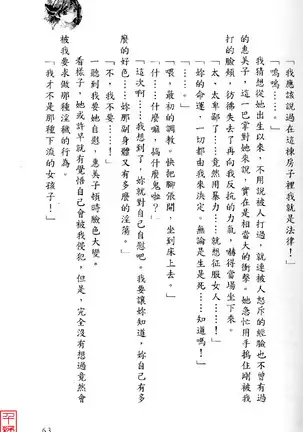 「我應該說過在這棟房子裡我就是法律！」
「嗚嗚……。」
我猜想從她出生以來，不用說被人打過，就連被人怒斥的經驗也不曾有過
的惠美子，這一巴掌對她來說，實在是相當大的衝擊。她急忙用手摀住剛被我
打的臉頰，彷彿失去了方向我反抗的力氣，嚇得當場坐下來。
「太、太卑鄙了……竟然用暴力……就想征服女人！」
「妳的命運，一切都由我來決定。無論是生是死……知道嗎！」
「……………」
「喂，最初的調教。快把腳張開，坐到床上去。」
「什……什麼嘛，搞什麼鬼啦？」
「這次啊……我想到了，妳就對自己自慰吧。我要讓妳知道，妳自己有多
麼的好色……妳那副身體又有多麼的淫蕩。」
「不，我不要……！」
一聽到我要她自慰，惠美子頓時臉色大變。
看樣子，她或許早就有覺悟自己會被我侵犯，但是，完全沒有想過竟然會
被我要求做那種淫穢的行為。
「我才不是那種下流的女孩子！」
63